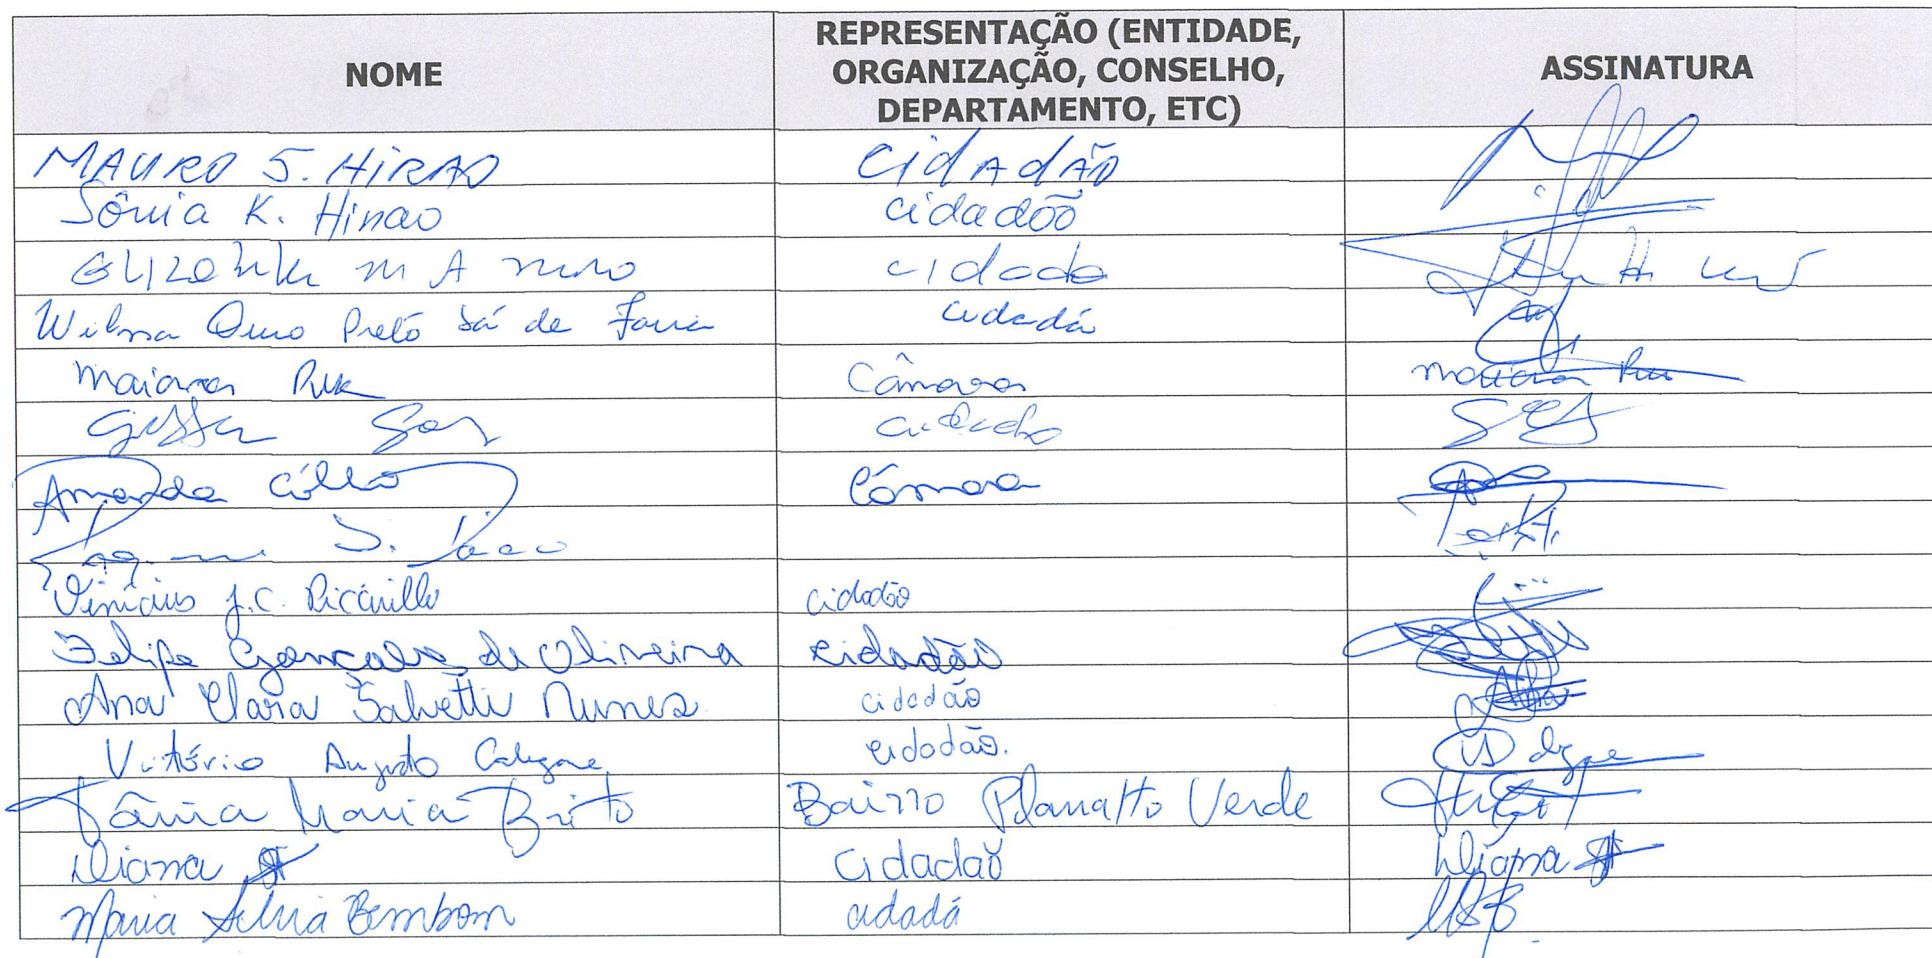 NOME
REPRESENTAÇÃO (ENTIDADE,
ORGANIZAÇÃO, CONSELHO,
DEPARTAMENTO, ETC)
ASSINATURA
MAURO S. HIRAO CIDADÃO
Sônia K. Hirao cidadão
M A cidada
Wilma Ouro Preto Sá de Faria cidadã
Maiara Câmara Maiara
cidadão
Amanda Câmara
S.
Vinicius J.C. Piccirillo cidadão
Felipe Gonçalves de Oliveira cidadão
Ana Clara Salvetti Nunes cidadão
Vittório Augusto cidadão.
Tânia Maria Brito Bairro Planalto Verde
Diana cidadão Diana
Maria Silvia Bembom cidadã MSB